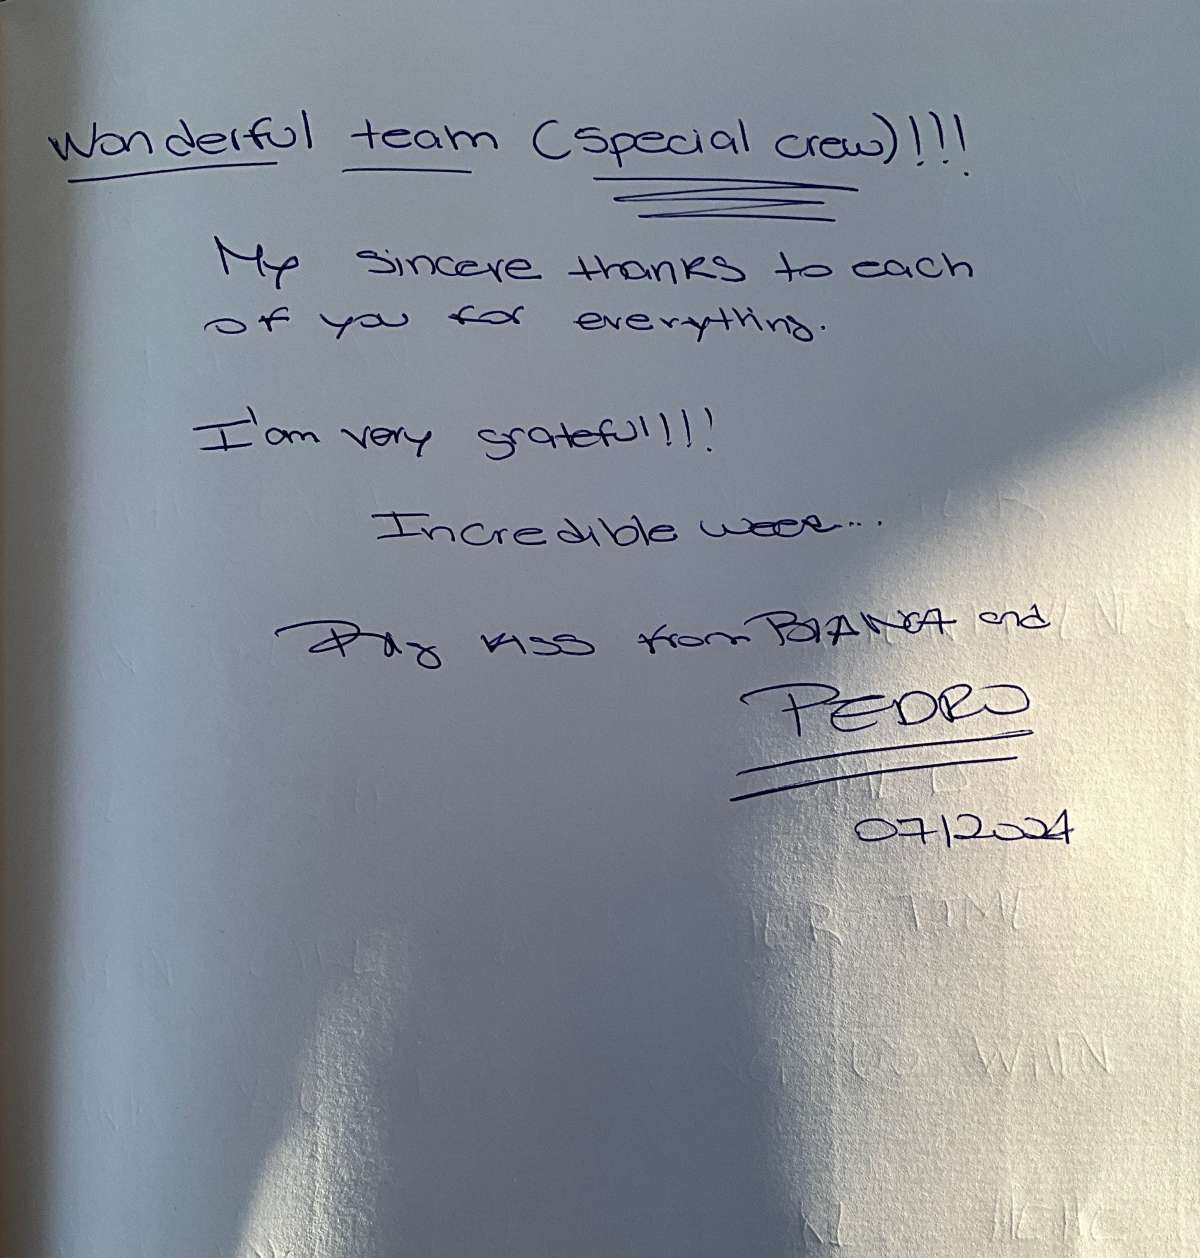 Wonderful team (special crew)!!!
My sincere thanks to each
of you for everything.
I'am very grateful!!!
Incredible week...
Big kiss from BIANCA and
PEDRO
07/2024
TIME